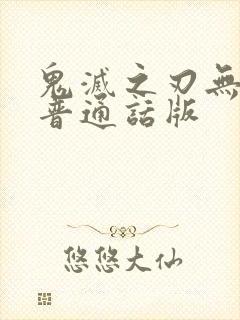 鬼滅之刃無
普通話版
悠悠大仙